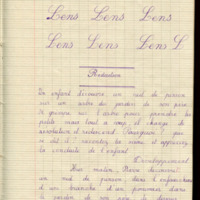 Lens Lens Lens
Lens Lens Lens L
Rédaction
Un enfant découvre un nid de pinson
sur un arbre du jardin de son père.
Il grimpe sur l'arbre pour prendre les
petits mais tout à coup il change de
résolution et redescend. Pourquoi ? que
se dit-il ? racontez la scène et appréciez
la conduite de l'enfant.
Développement
Hier matin, Pierre découvrit
un nid de pinson dans l'enfourchure
d'une branche d'un pommier dans
le jardin de son père